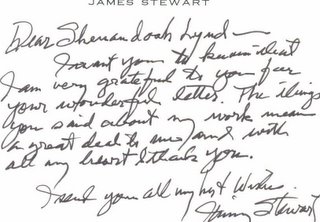 JAMES STEWART
Dear Shenandoah Lynd—
I want you to know that
I am very grateful to you for
your wonderful letter. The things
you said about my work mean
a great deal to me, and with
all my heart I thank you.
I send you all my best wishes
Jimmy Stewart